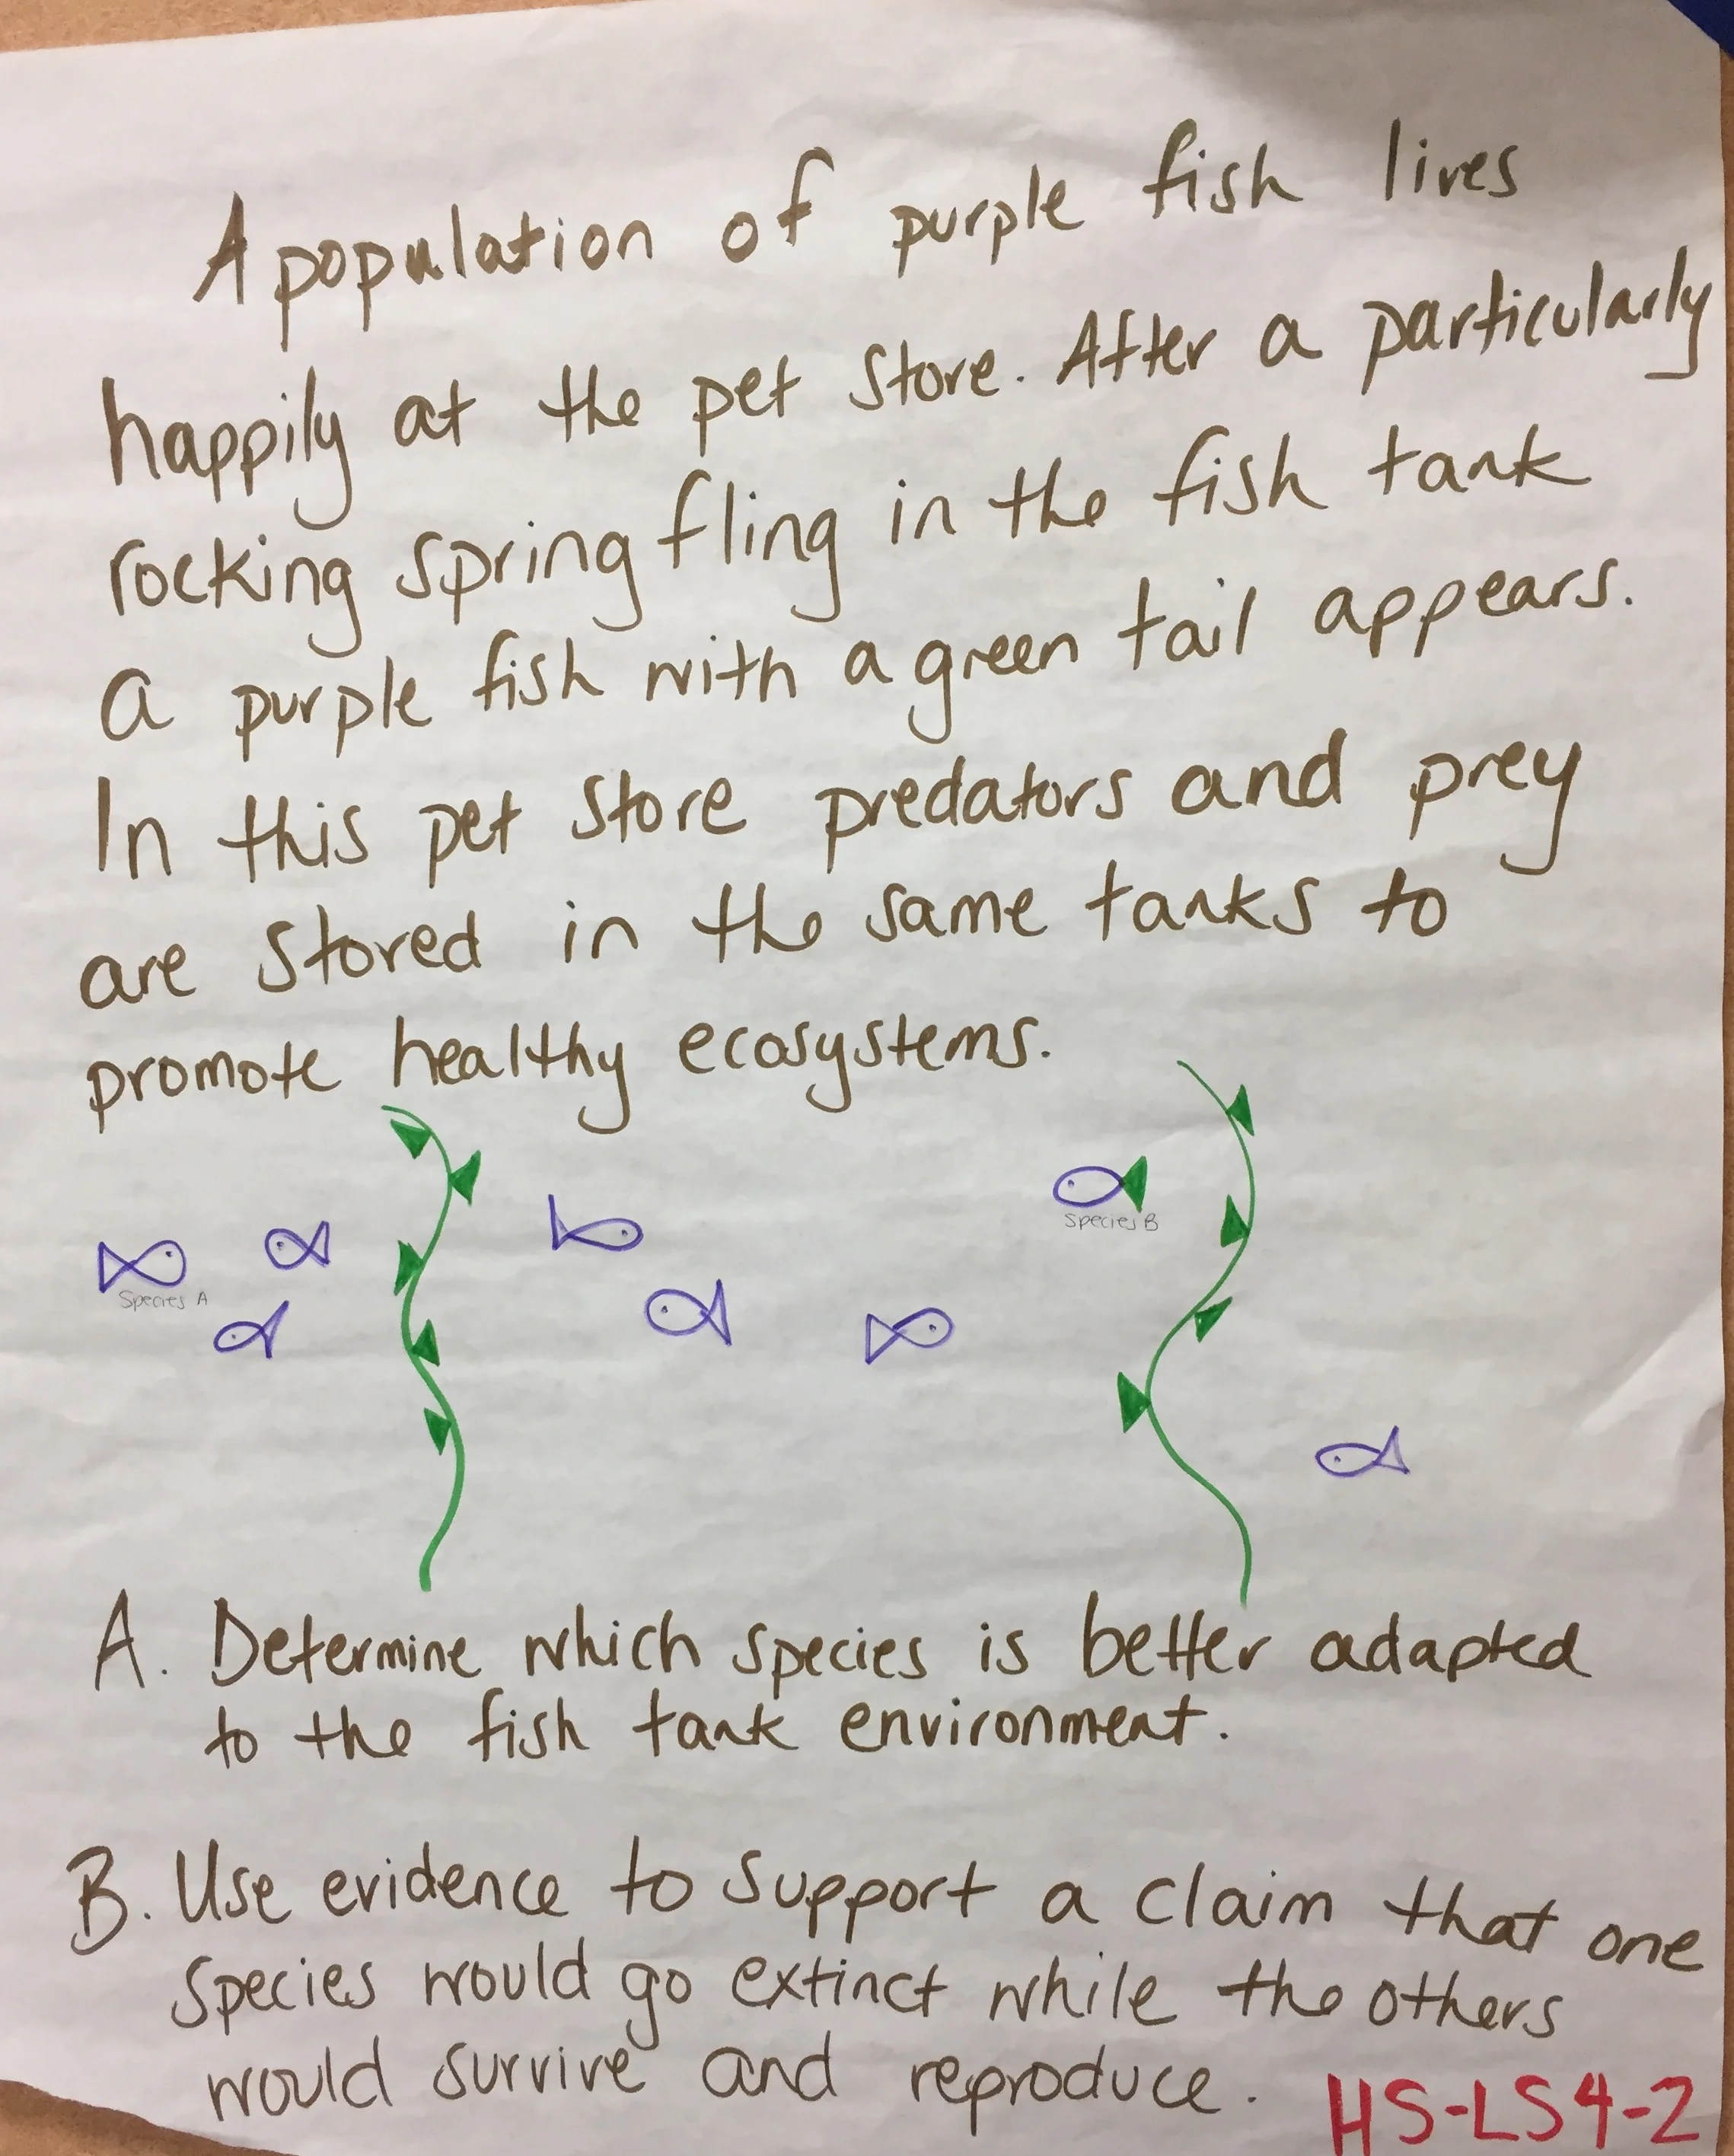 A population of purple fish lives
happily at the pet store. After a particularly
rocking spring fling in the fish tank
a purple fish with a green tail appears.
In this pet store predators and prey
are stored in the same tanks to
promote healthy ecosystems.
Species B
Species A
A. Determine which species is better adapted
to the fish tank environment.
B. Use evidence to support a claim that one
species would go extinct while the others
would survive and reproduce.
HS-LS4-2